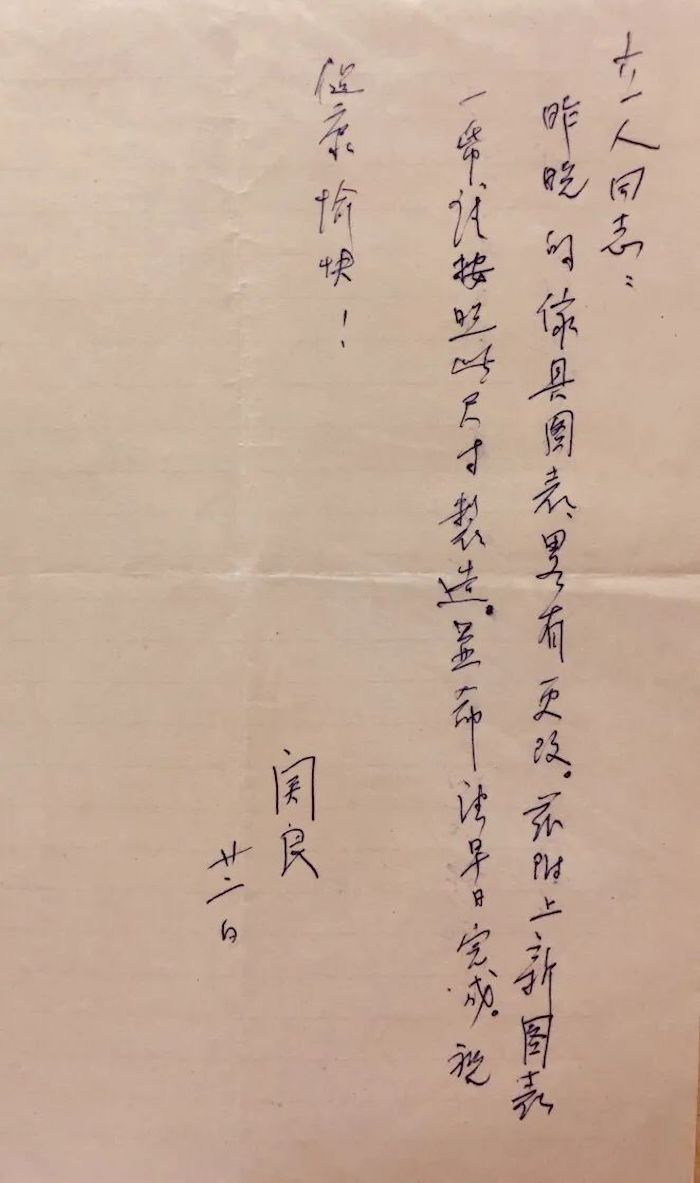 立人同志：
昨晚的傢具图表、畧有更改。兹附上新图表
一帋请按照此尺寸製造。並希请早日完成。祝
健康愉快！
関良
廿二日